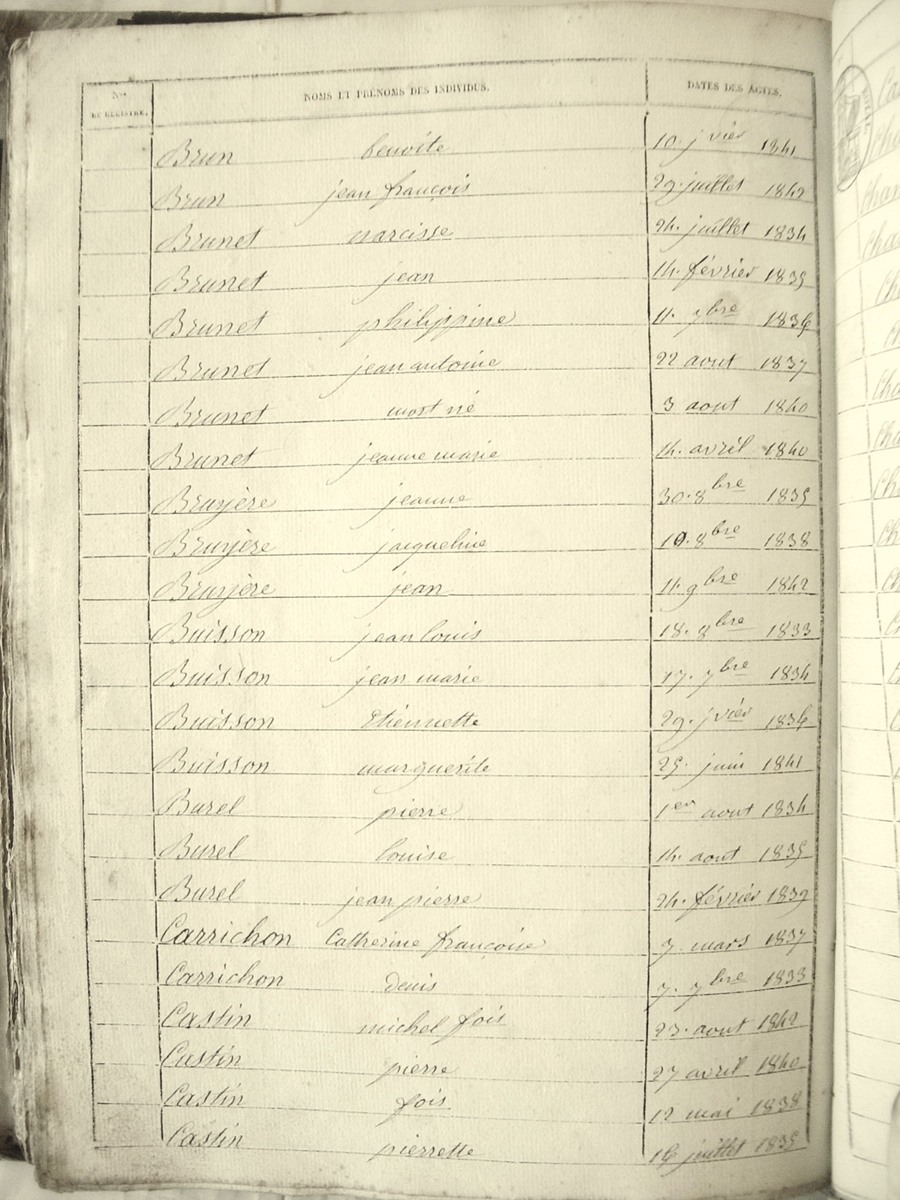 Nos DU REGISTRE. NOMS ET PRÉNOMS DES INDIVIDUS. DATES DES ACTES.
Brun benoite 10. jvier 1841
Brun jean françois 29. juillet 1842
Brunet narcisse 24. juillet 1834
Brunet jean 14. février 1835
Brunet philippine 11. 7bre 1836
Brunet jean antoine 22 aout 1837
Brunet mort né 3 aout 1840
Brunet jeanne marie 14. avril 1840
Bruyère jeanne 30. 8bre 1835
Bruyère jacqueline 19. 8bre 1838
Bruyère jean 11. 9bre 1842
Buisson jean louis 18. 8bre 1833
Buisson jean marie 17. 7bre 1834
Buisson Etiennette 29. jvier 1836
Buisson marguerite 25. juin 1841
Burel pierre 1er aout 1834
Burel louise 14. aout 1835
Burel jean pierre 24. février 1839
Carrichon Catherine françoise 7. mars 1837
Carrichon denis 7. 7bre 1833
Castin michel fois 23. aout 1842
Castin pierre 27 avril 1840
Castin fois 12 mai 1838
Castin pierrette 16 juillet 1835